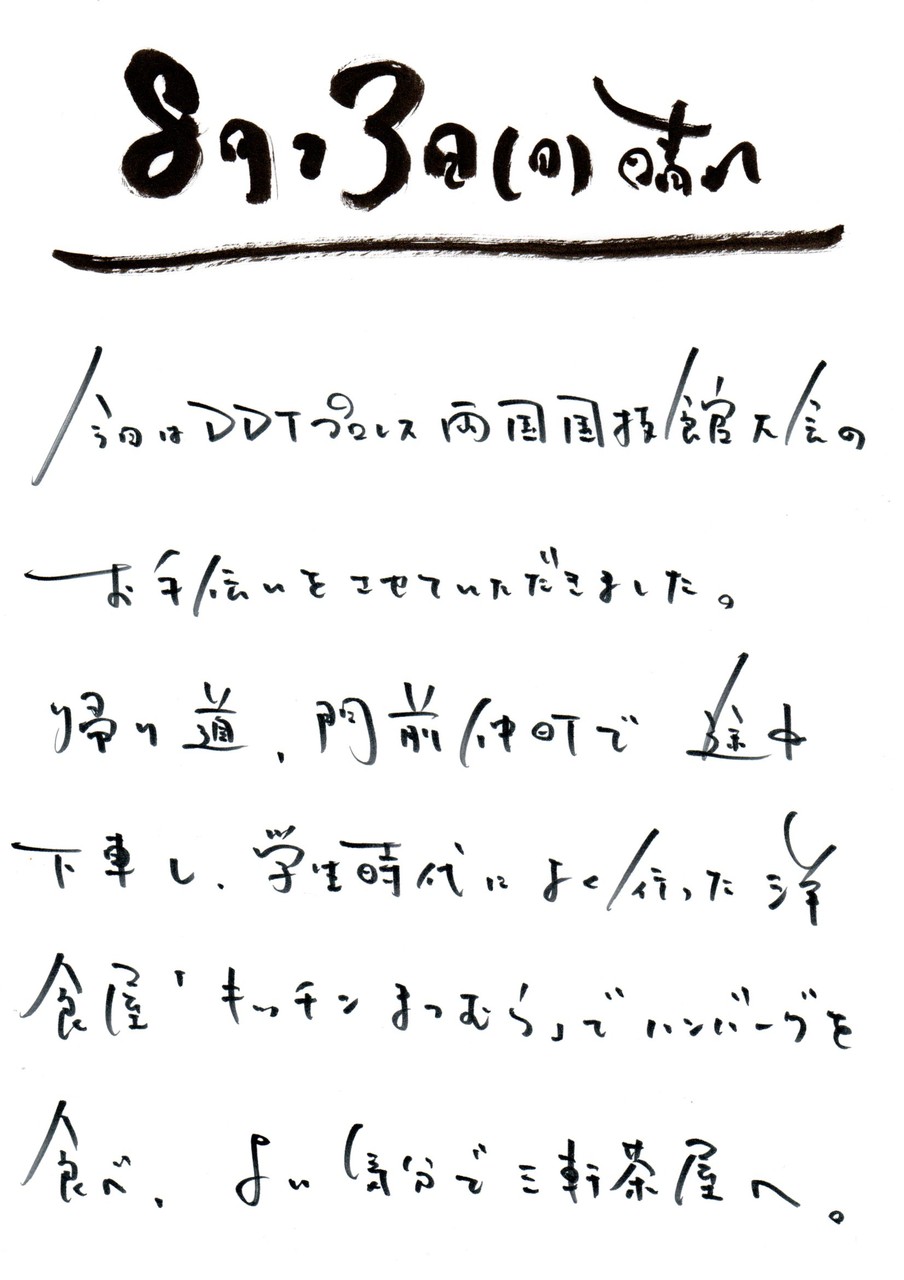 8月23日(日)晴れ
今日はDDTプロレス両国国技館大会の
お手伝いをさせていただきました。
帰り道、門前仲町で途中
下車し、学生時代によく行った洋
食屋「キッチンまつむら」でハンバーグを
食べ、よい気分で三軒茶屋へ。